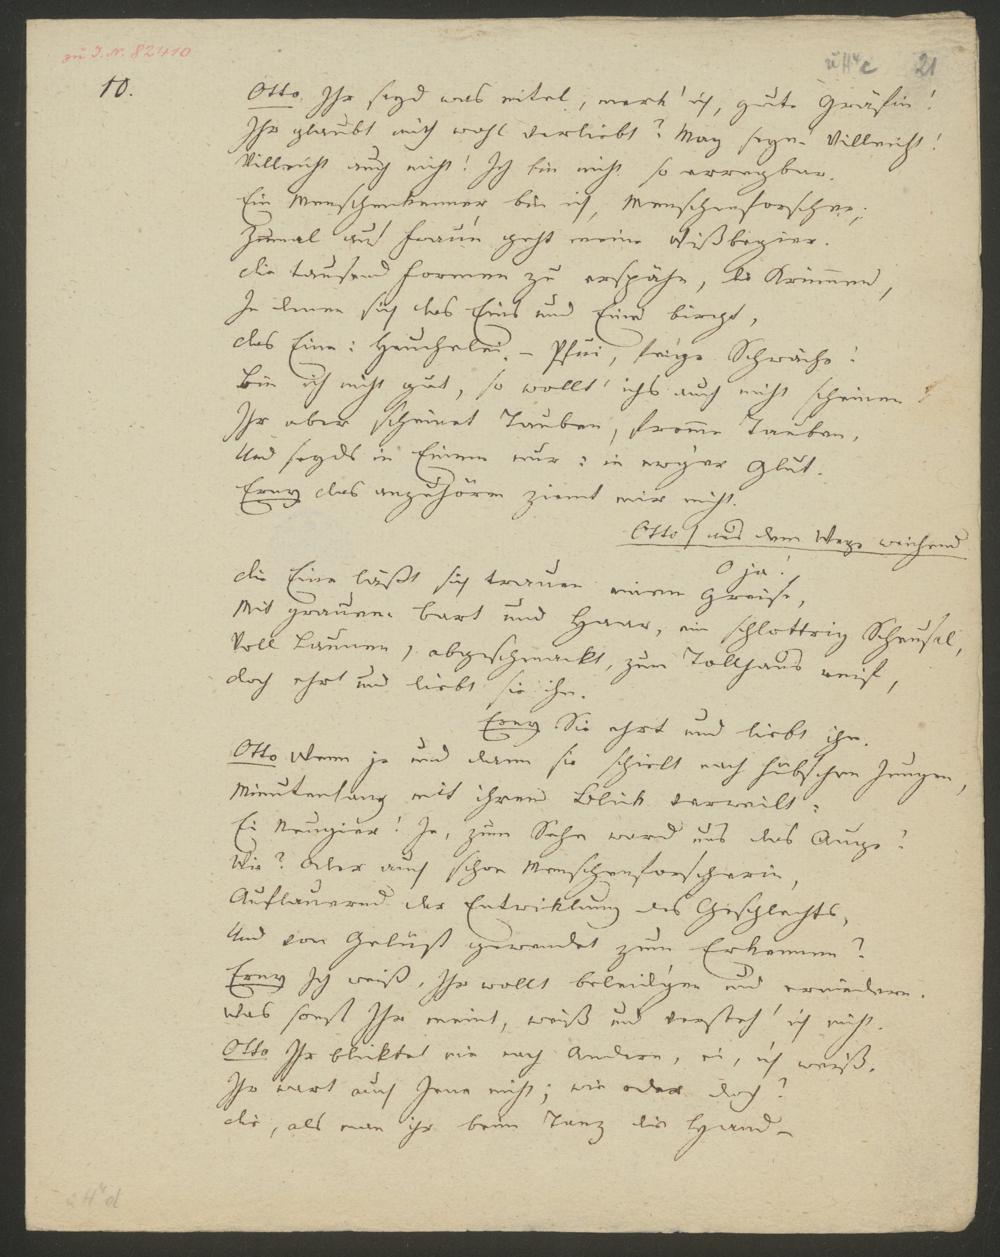 zu I. N. 82410
zu H⁴c 21
10.
Otto Ihr seyd was eitel, merk' ich, gute Gräfin!
Ihr glaubt mich wohl verliebt? Mag seyn. Villeicht!
Villeicht auch nicht! Ich bin nicht so erregbar.
Ein Menschenkenner bin ich, Menschenforscher;
Zumal auf Fraun geht meine Wißbegier.
die tausend Formen zu erspähn, die Krümmen,
In denen sich das Eins und Eine birgt,
das Eine: Heuchelei. – Pfui, feige Schwäche!
Bin ich nicht gut, so wollt' ichs auch nicht scheinen
Ihr aber scheinet Tauben, fromme Tauben,
Und seyds in Einem nur: in ewger Glut.
Erny das anzuhören ziemt mir nicht.
Otto / aus dem Wege weichend
O ja!
die Eine läßt sich trauen einem Greise,
Mit grauem Bart und Haar, ein schlottrig Scheusal,
Voll Launen, abgeschmackt, zum Tollhaus reif,
doch ehrt und liebt sie ihn.
Erny Sie ehrt und liebt ihn.
Otto Wenn je und dann sie schielt nach hübschen Jungen,
Minutenlang mit ihrem Blick verweilt:
Ei Neugier! Je, zum Sehn ward uns das Auge!
Wie? Oder auch schon Menschenforscherin,
Auflauernd der Entwicklung des Geschlechts,
Und von Gelüst gewendet zum Erkennen?
Erny Ich weiß, Ihr wollt beleidigen und erniedern.
Was sonst Ihr meint, weiß und versteh' ich nicht.
Otto Ihr blicktet nie nach Andern, ei, ich weiß.
Ihr wart auch Jene nicht; wie oder doch?
die, als man ihr beim Tanz die Hand –
H⁴d